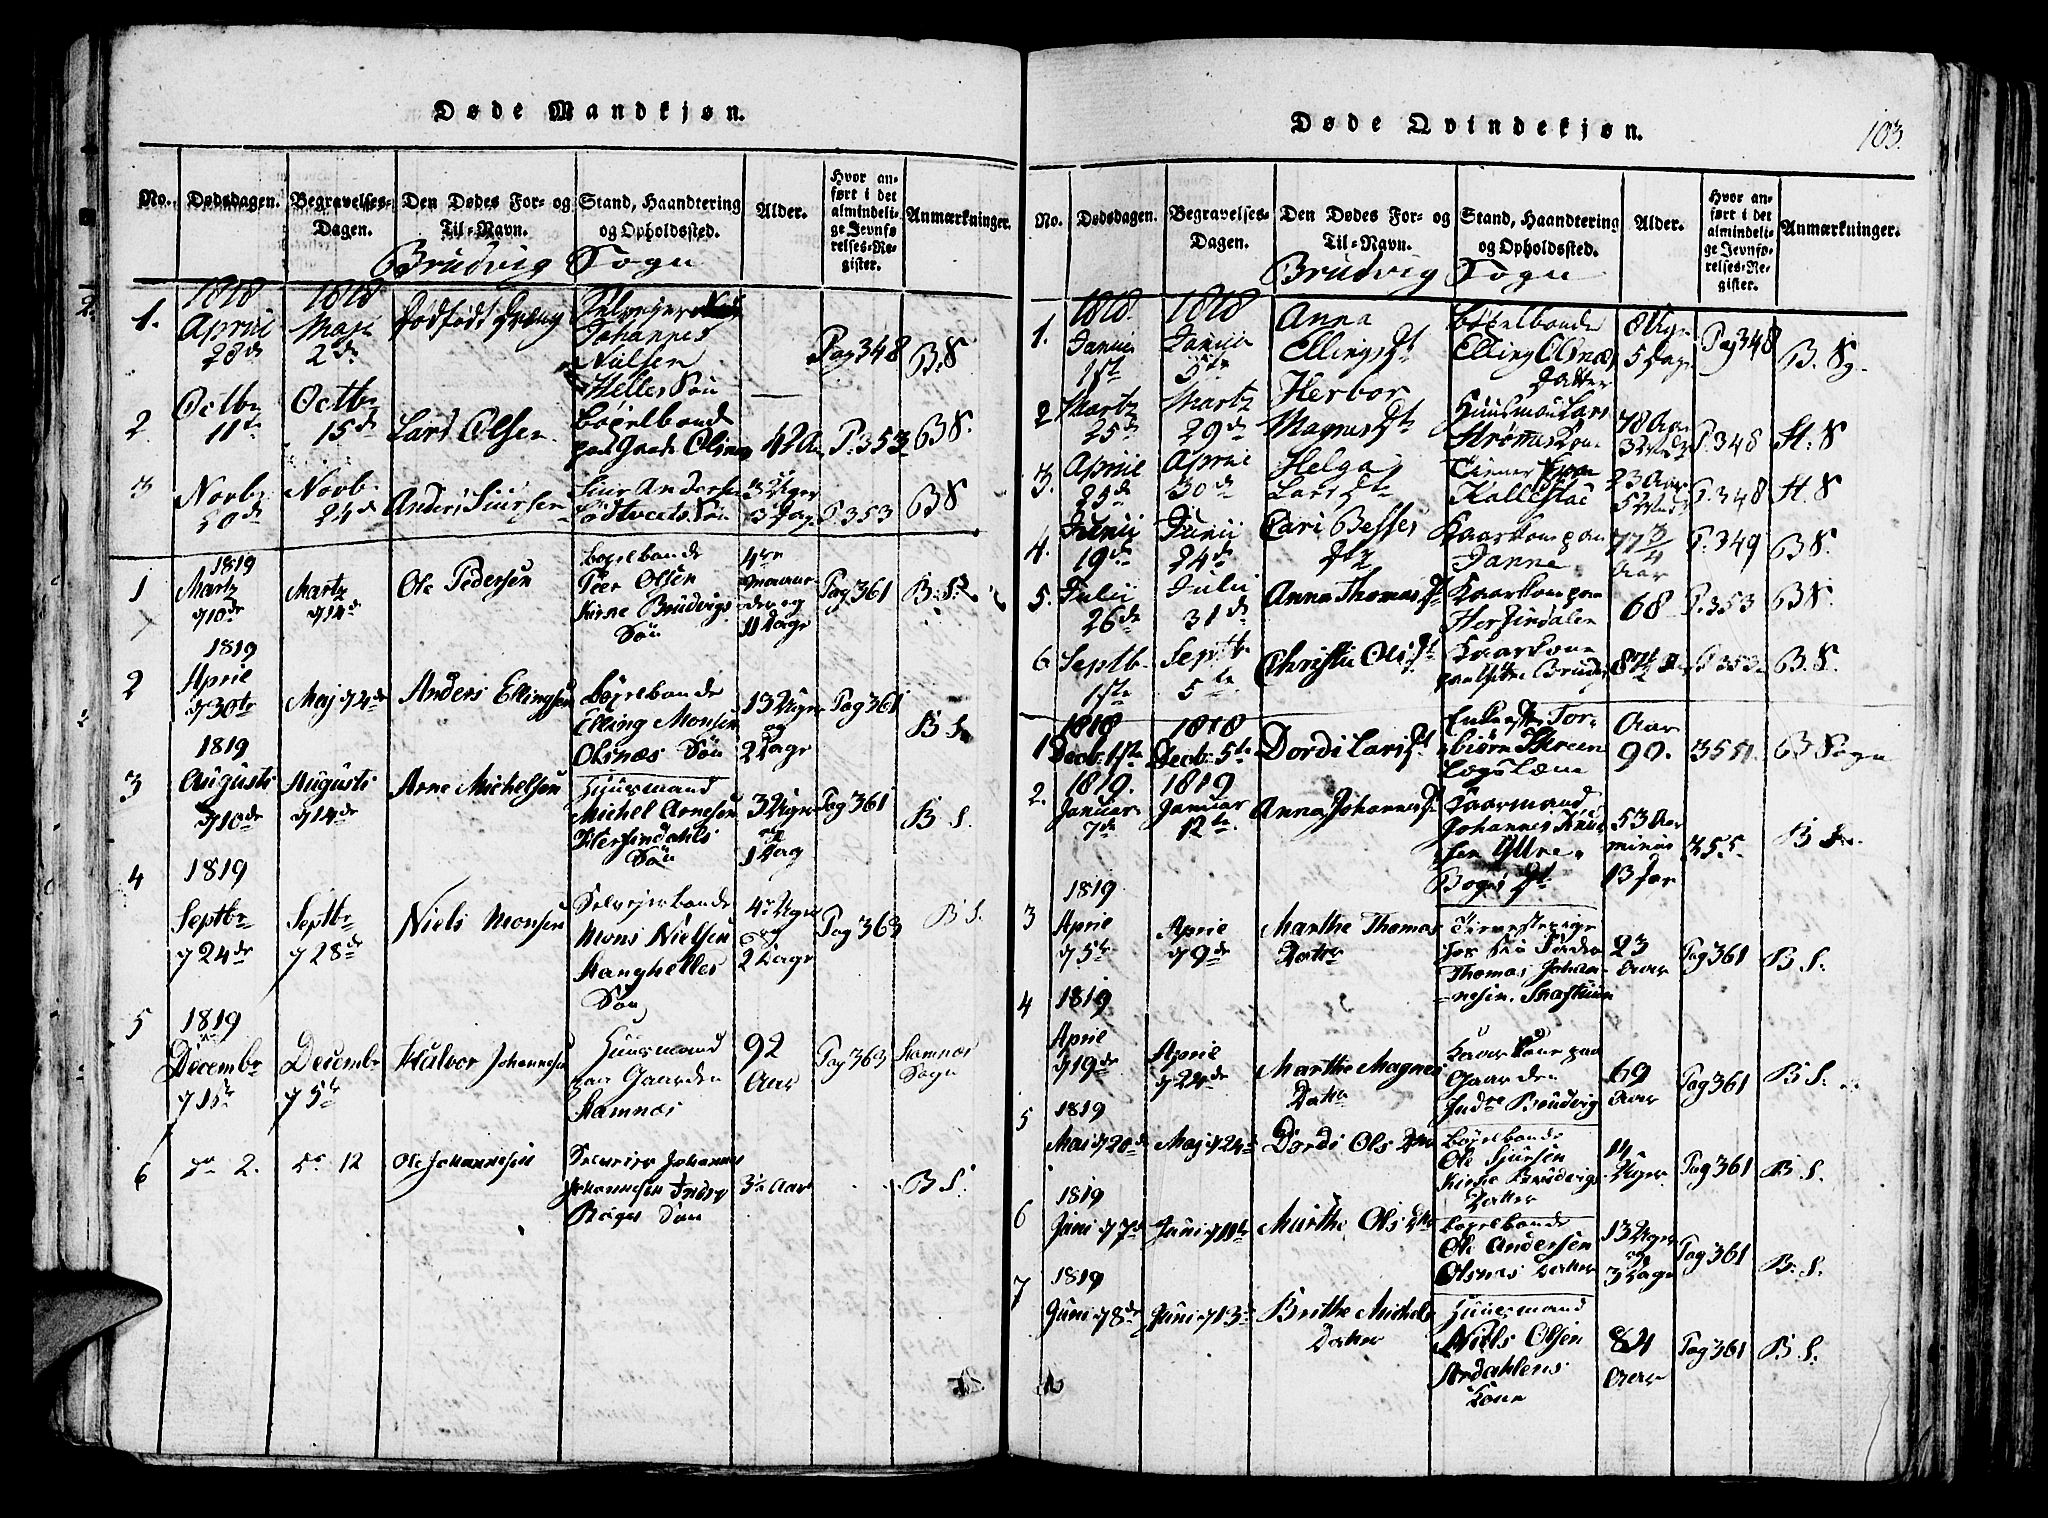 Døde Mandkjøn.
No.
Dødsdagen.
Begravelses-
Dagen.
Den Dødes For- og
Til-Navn.
Stand, Haandtering
og Opholdssted.
Alder.
Hvor an-
ført i det
almindeli-
ge Jevnfø-
relses-Re-
gister.
Anmærkninger.
Brudvig Sogn
1.
1818
April
28de
1818
Maji
2de
Dødfødt Dreng
Johannes
Nielsen
Helles Søn
Pag 348
B. S
2.
Octbr
11te
Octbr
15de
Lars Olsen
Böxelbonde
paa Gaard Olsnes
42 A
P. 353
B S.
3
Novb
Novb.
24de
Anders Siursen
Siur Andersen
Søn
3 Uger
3 Dag
P. 353
B S
1
1819
Martz
d 10de
Martz
d 14de
Ole Pedersen
bøxelbonde
Peer Olsen
Kirke Brudvigs
Søn
4re
Maane-
der og
11 Dage
Pag 361
B. S.
2
1819
April
d 30te
Maj d 4de
Anders Ellingsen
bøxelbonde
Elling Monsen
Olsnæs Søn
13 Uger
og
2 Dage
Pag 361
B S.
3
1819
Augusti
d 10de
Augusti
d 14de
Arne Michelsen
Huusmand
Michel Arnesen
Herfindahls
Søn
3 Uger
og
1 Dag
Pag 361
B S.
4
1819
Septbr
d 24de
Septbr
d 28de
Niels Monsen
Selvejerbonde
Mons Nielsen
Stanghelles
Søn
4re Uger
og
2 Dage
Pag 363
B S.
5
1819
Decembr
d 1ste
Decembr
d 5te
Halvor Johannesen
Huusmand
paa Gaarden
Stamnæs
92
Aar
Pag 363
Stamnæs
Sogn
6
do 2.
do 12
Ole Johannesen
Selveier Johannes
Johannesen Indre
Bøges Søn
3½ Aar
B S.
Døde Qvindekjøn.
103.
No.
Dødsdagen.
Begravelses-
Dagen.
Den Dødes For- og
Til-Navn.
Stand, Haandtering
og Opholdssted.
Alder.
Hvor an-
ført i det
almindeli-
ge Jevnfø-
relses-Re-
gister.
Anmærkninger.
Brudvig Sogn
1.
1818.
Janui
1ste
1818
Janui
5te
Anna
Ellings Dt
bøxelbonde
Elling Olsnæs
Datter
8 Uger
5 Dage
Pag 348
B. Sg.
2
Martz
25de
Martz
29de
Herbor
Magnes Dt
Huusmand Lars
Strømes Kone
78 Aar
P. 348
H. S
3.
April
25de
April
30de
Helga
Lars Dt
Kallestad
23 Aar
P. 348
H. S
4.
Junii
19de
Junii
24de
Cari Besses
Dtr
Kaarkone paa
Janne
77 3/4
Aar
P. 349
B S.
5.
Julii
26de
Julii
31de
Anna Thomas Dt
Kaarkone paa
Herfindalen
68
P. 353
B S.
6
Septb.
1ste
Septbr
5te
Christie Ols Dt
Kaarkone
paa Ytre Brudvig
P. 353
B. S.
1
1818
Decb. 1ste
1818
Decb. 5te
Dordi Lars Dt
Enke efter Tor-
biørn
Lægslæm
Aar
90.
355.
B Sogn
2.
1819.
Januar
7de
1819
Januar
12te
Anna Johannes Dt
Kaarmand
Johannes Knud-
sen Yttre
Boges Dt
53 Aar
minus
13 Dar
355
B S.
3
1819
April
d 5te
April
d 9de
Marthe Thomas
Dattr
Tienestepige
Thomas Johan-
nesen
23
Aar
Pag 361
B S.
4
1819
April
d 19de
April
d 24de
Marthe Magnes
Dattr
Kaarkone paa
Gaarden
Indre Brudvig
69
Aar
Pag 361
B S.
5
1819
Mai d 20de
Maj d 24de
Dordi Ols Dtr
Bøxelbonde
Ole Sjursen
Kirke Brudvigs
Datter
14
Uger
Pag 361
B S.
6
1819
Juni d 7de
Juni d 11te
Marthe Ols Dtr
bøxelbonde
Ole Andersen
Olsnæs Datter
13 Uger
og
3 Dage
Pag 361
B. S.
7
1819
Juni d 8de
Juni d 13de
Brithe Michels
Datter
Huusmand
Niels Olsen
Ardahlens
Kone
84
Aar
Pag 361
B S.